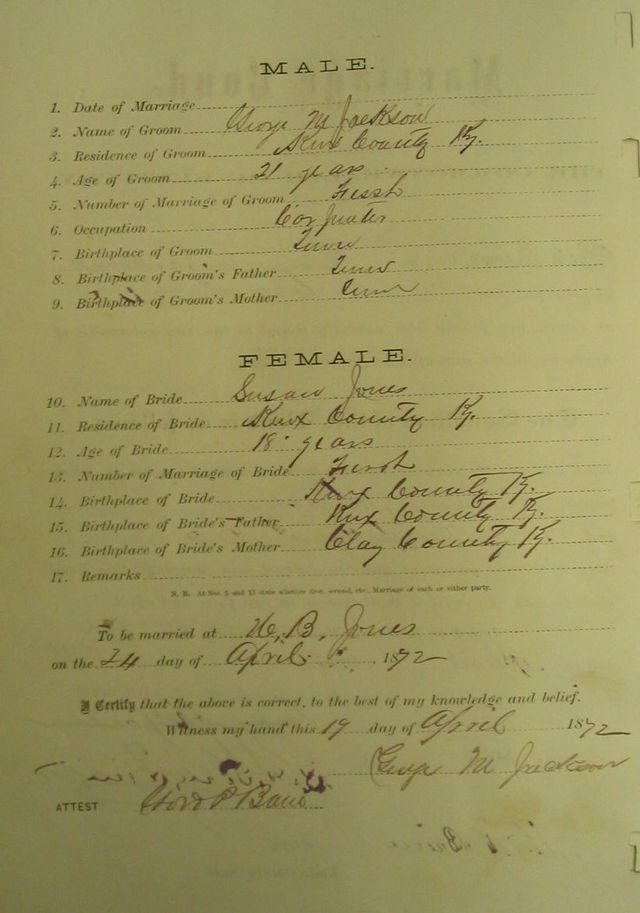 MALE.
1. Date of Marriage
2. Name of Groom George M Jackson
3. Residence of Groom Knox County Ky.
4. Age of Groom 21 years
5. Number of Marriage of Groom First
6. Occupation Carpenter
7. Birthplace of Groom Tenn
8. Birthplace of Groom's Father Tenn
9. Birthplace of Groom's Mother Tenn
FEMALE.
10. Name of Bride Susan Jones
11. Residence of Bride Knox County Ky.
12. Age of Bride 18 years
13. Number of Marriage of Bride First
14. Birthplace of Bride Knox County Ky.
15. Birthplace of Bride's Father Knox County Ky.
16. Birthplace of Bride's Mother Clay County Ky.
17. Remarks
N. B. At Nos. 5 and 13 state whether first, second, etc., Marriage of each or either party.
To be married at B. Jones
on the 24 day of April 1872
I Certify that the above is correct, to the best of my knowledge and belief.
Witness my hand this 19 day of April 1872
George M Jackson
ATTEST